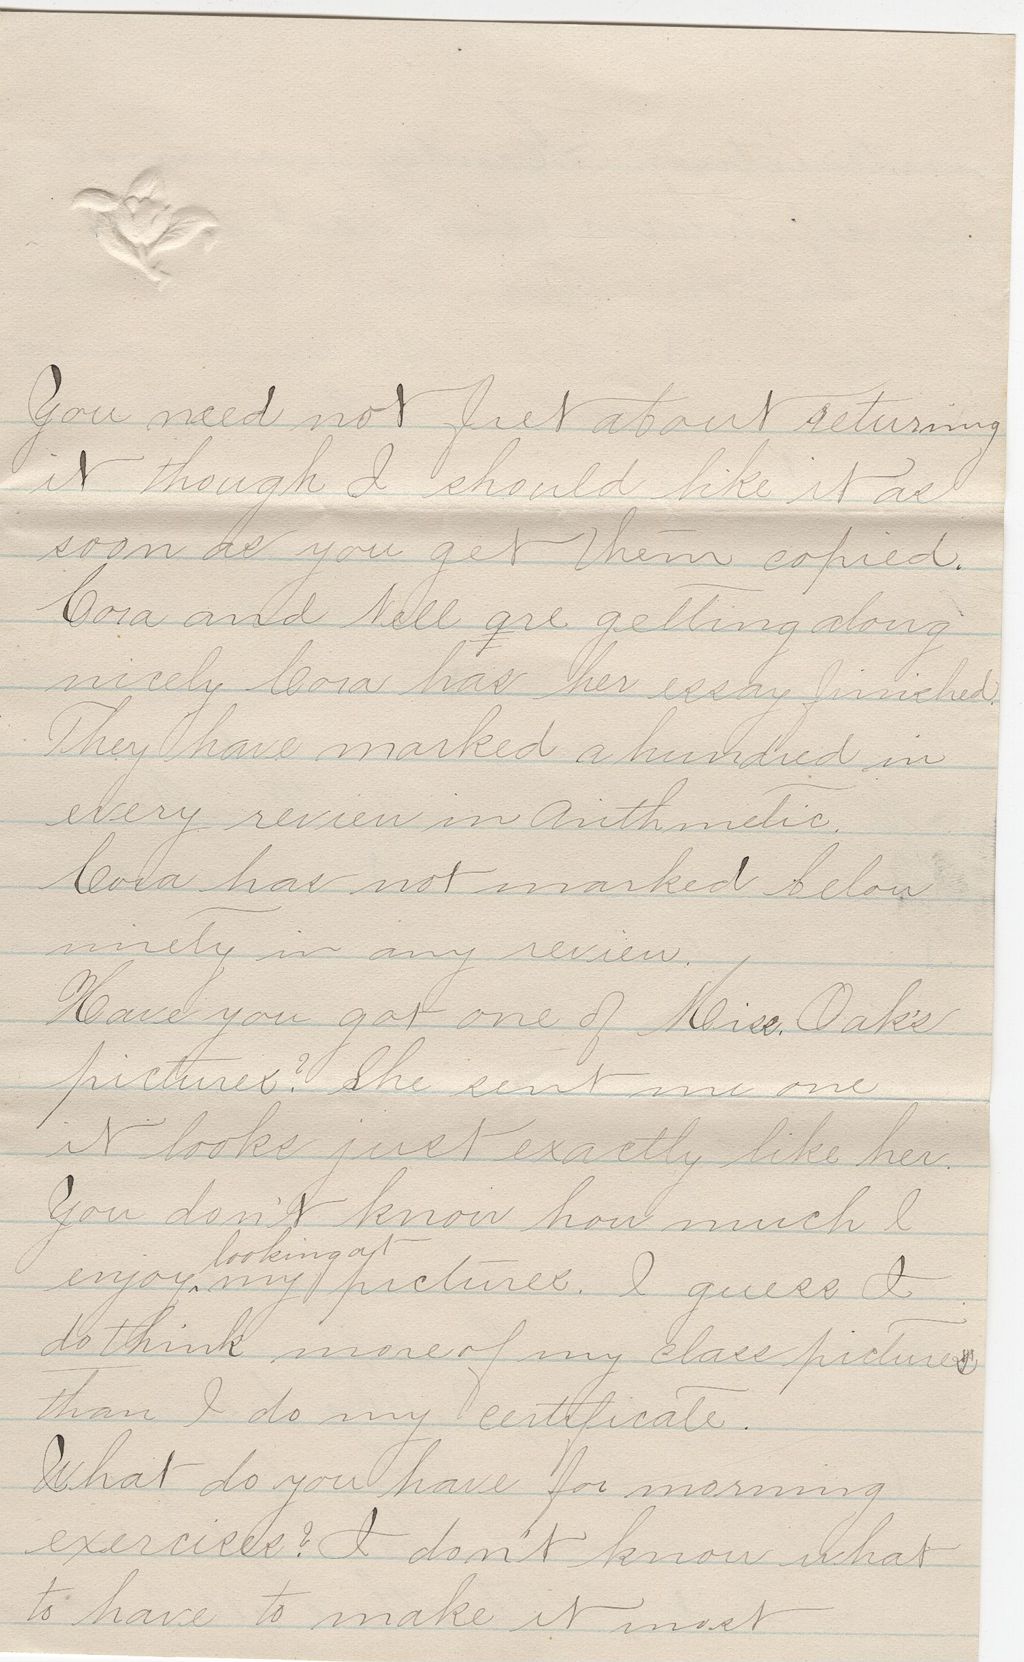 You need not fret about returning
it though I should like it as
soon as you get them copied.
Cora and Nell are getting along
nicely Cora has her essay finished.
They have marked a hundred in
every review in arithmetic.
Cora has not marked below
ninety in any review.
Have you got one of Miss. Oak's
pictures? She sent me one
it looks just exactly like her.
You don't know how much I
looking at
enjoy ‸ my pictures. I guess I
do think more of my class pictures
than I do my certificate.
What do you have for morning
exercises? I don't know what
to have to make it most